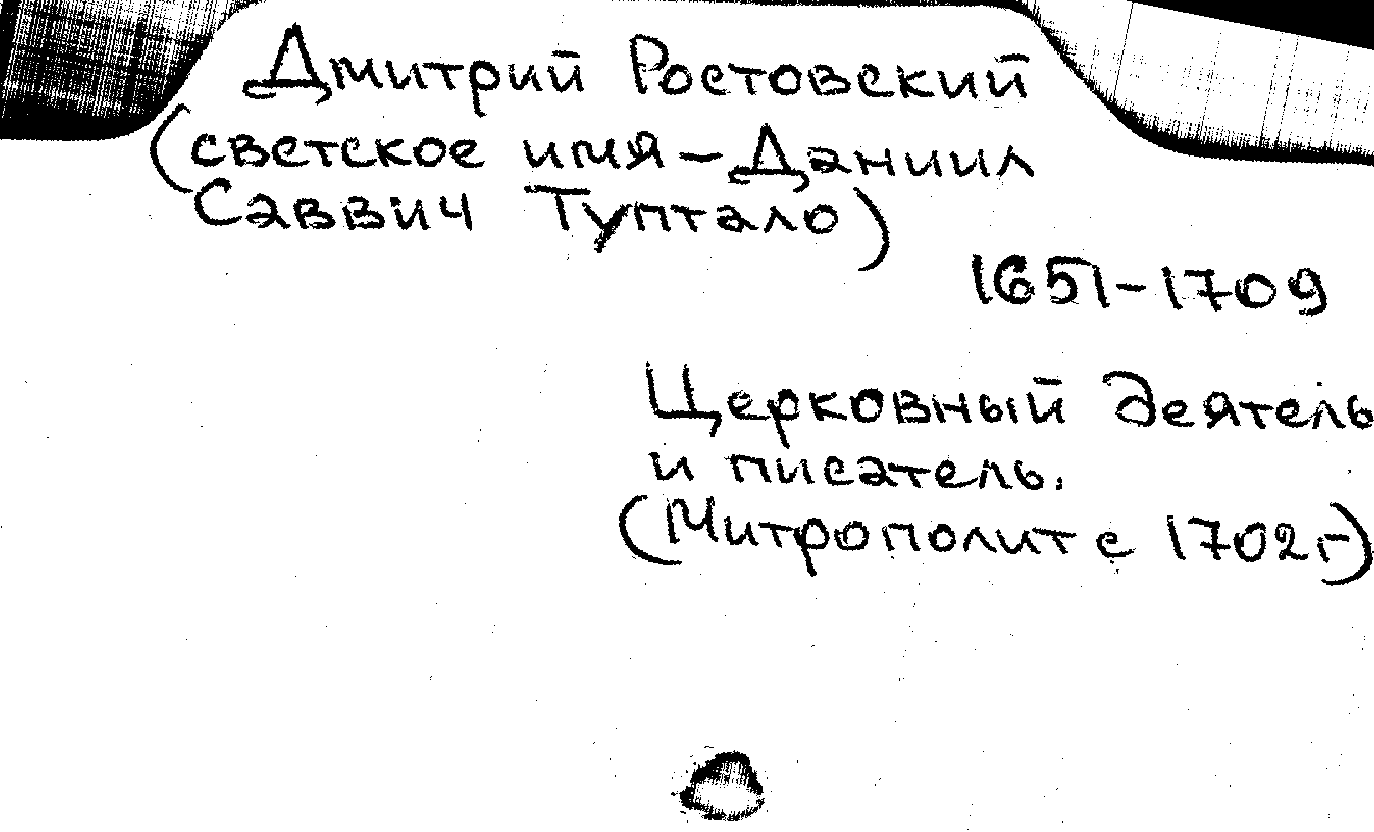 Дмитрий Ростовский
(светское имя – Даниил
Саввич Туптало)
1651-1709
Церковный деятель
и писатель.
(Митрополит с 1702г.)